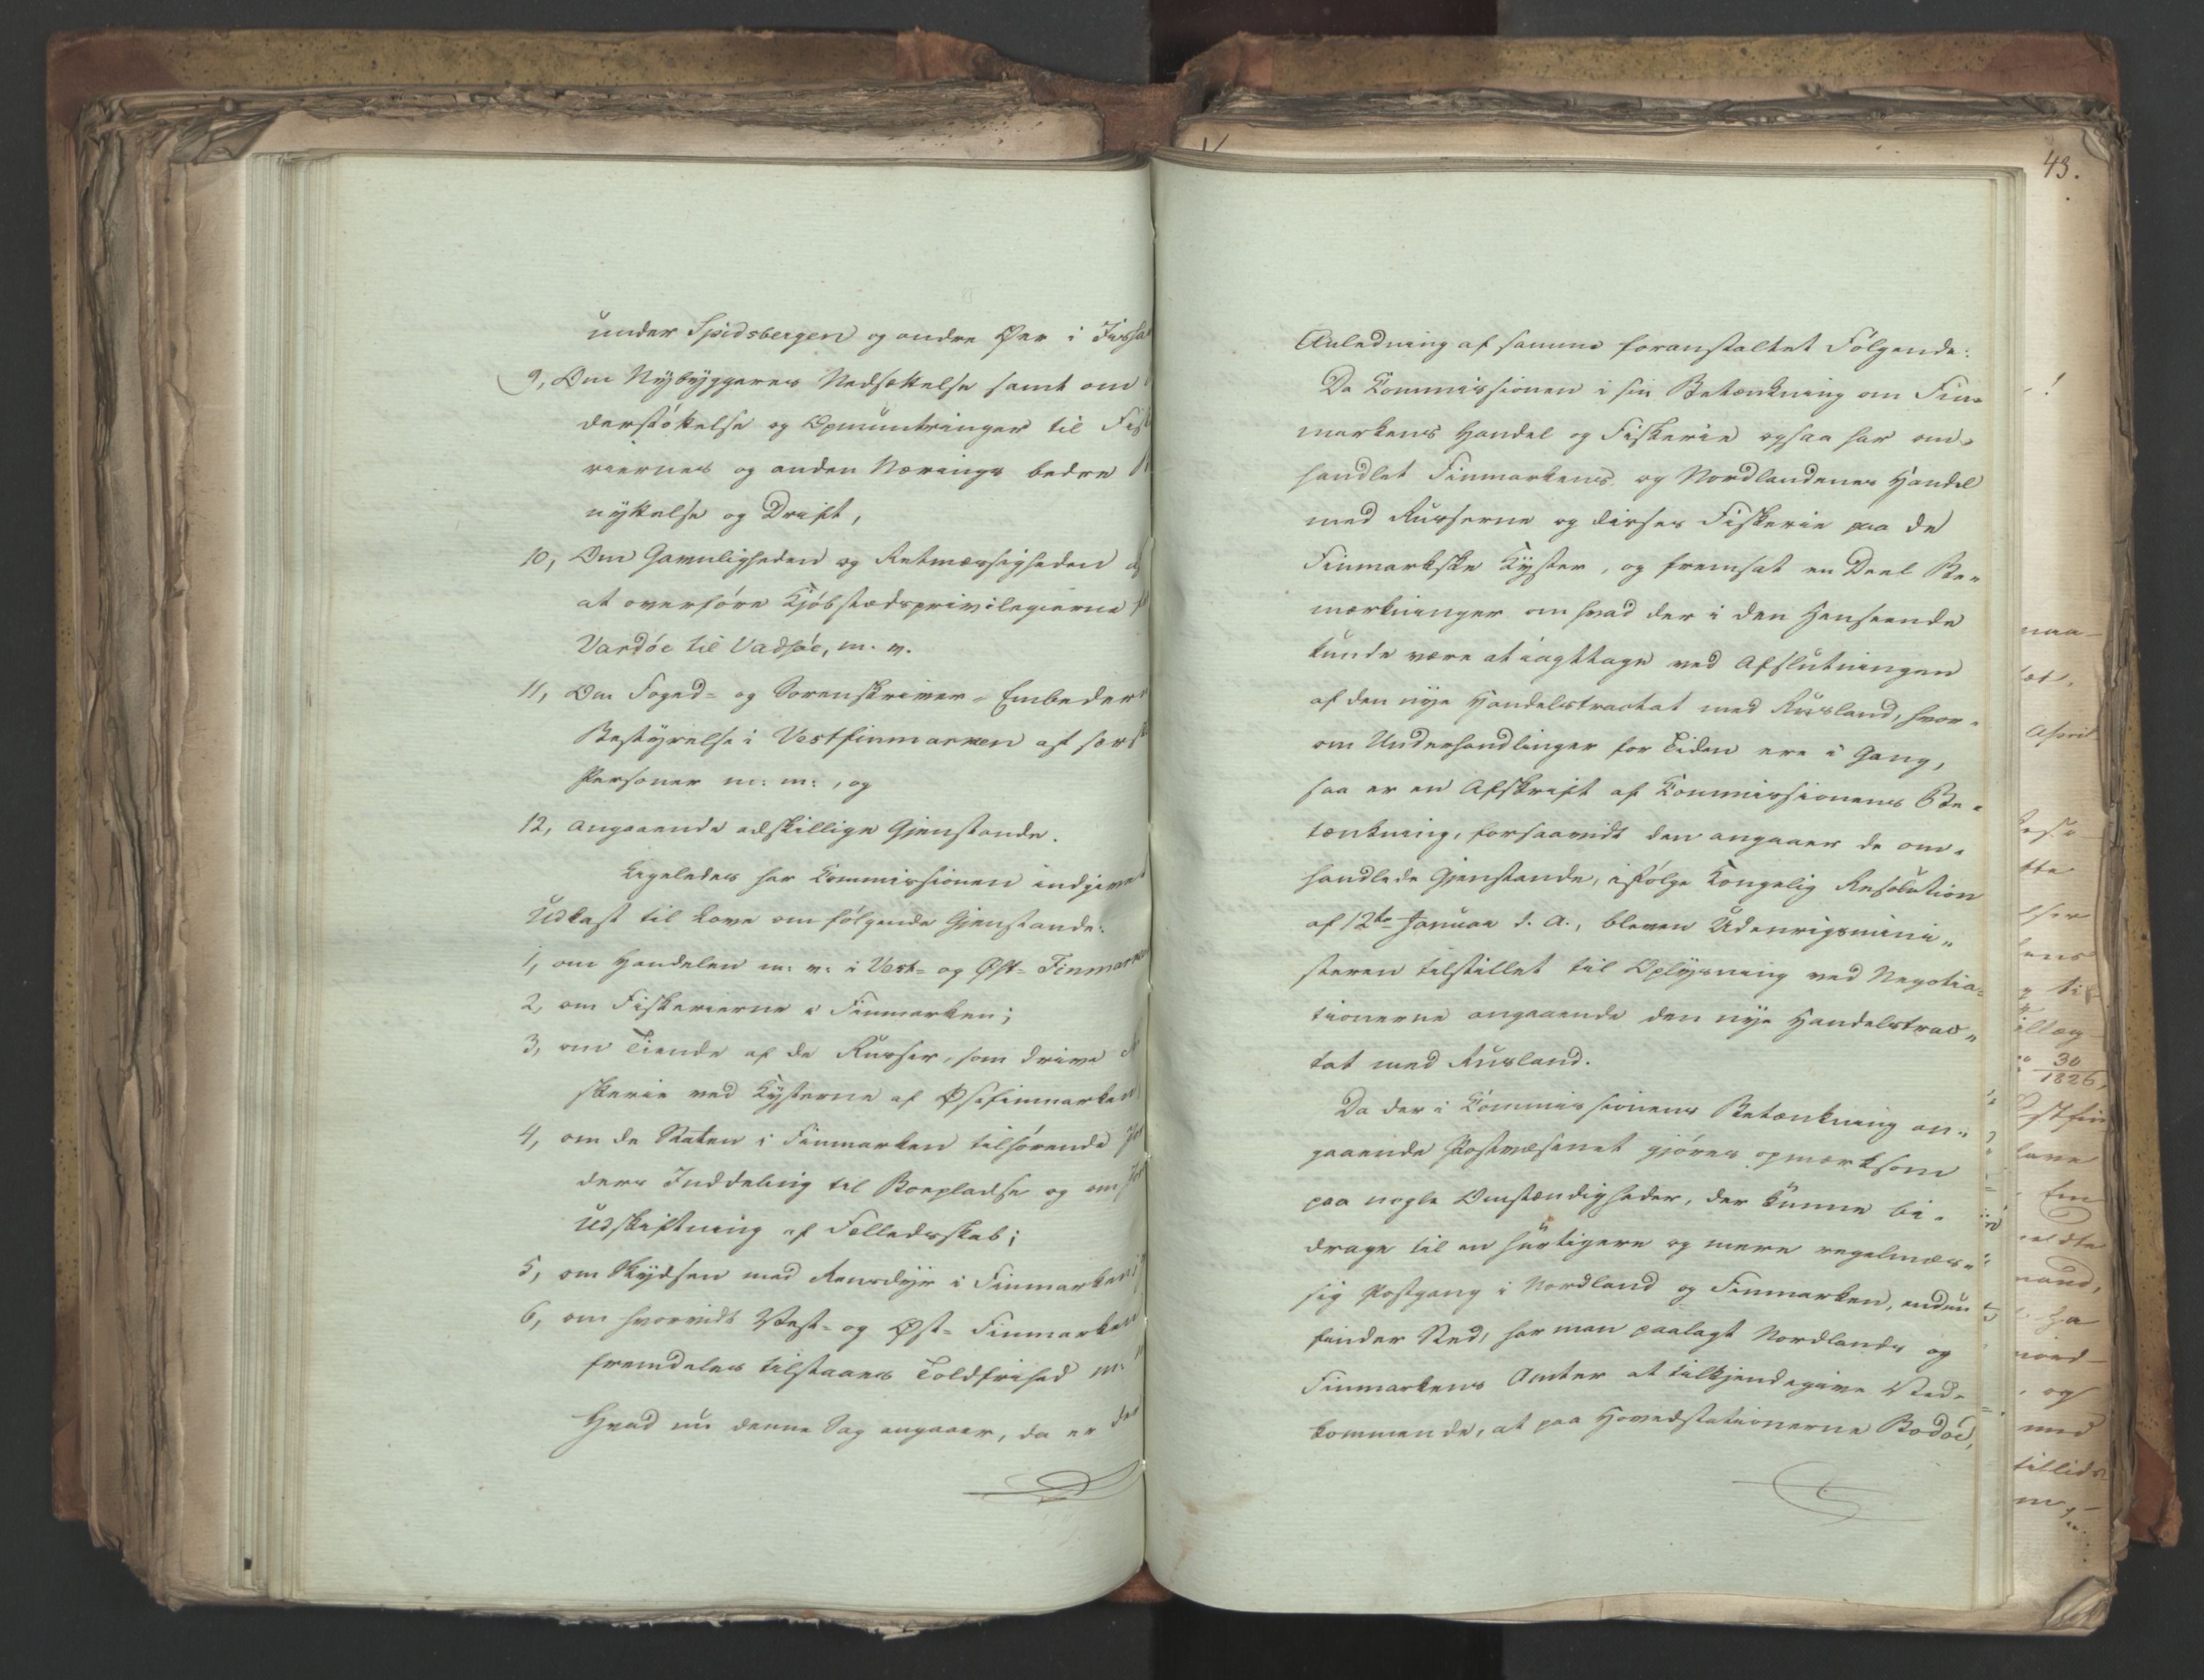 under Spidsbergen og andre Øer i
9, Om Nÿbÿggeres Nedsættelse samt om
derstöttelse og Opmuntringer til
riernes og anden Nærings bedre
nÿttelse og Drift,
10, Om Gavnligheden og Retmæssigheden af
at overföre Kjöbstedsprivilegierne
Vardöe til Vadsöe, m. v.
11, Om Foged- og Sorenskriver-Embeders
Bestÿrelse i Vestfinmarken af
Personer m: m:, og
12, angaaende adskillige Gjenstande.
Ligeledes har Kommissionen indgivet
Udkast til Love om fölgende Gjenstande:
1, om Handelen m: v: i Vest- og Øst-Finmarken
2, om Fiskerierne i Finmarken;
3, om Tiende af de Russer, som drive
skerie ved Kÿsterne af Østfinmarken
4, om de Staten i Finmarken tilhörende
ders Inddeling til Boepladse og om
Udskiftning af Fælledsskab;
5, om Skÿdsen med Rensdÿr i Finmarken;
6, om hvorvidt Vest- og Øst-Finmarken
fremdeles tilstaaes Toldfrihed m:
Hvad nu denne Sag angaaer, da er
43.
Anledning af samme foranstaltet Fölgende:
Da Kommissionen i sin Betænkning om Fin-
markens Handel og Fiskerie ogsaa har om-
handlet Finmarkens og Nordlandenes Handel
med Russerne og disses Fiskerie paa de
Finmarkske Kÿster, og fremsat en Deel Be-
mærkninger om hvad der i den Henseende
kunde være at iagttage ved Afslutningen
af den nÿe Handelstractat med Rusland, hvor-
om Underhandlinger for Tiden ere i Gang,
saa er en Afskrift af Kommissionens Be-
tænkning, forsaavidt den angaaer de om-
handlede Gjenstande, ifölge Kongelig Resolution
af 12te Januar d. A., bleven Udenrigsmini-
steren tilstillet til Oplÿsning ved Negotia-
tionerne angaaende den nÿe Handelstrac-
tat med Rusland.
Da der i Kommissionens Betænkning an-
gaaende Postvæsenet gjöres opmærksom
paa nogle Omstændigheder, der kunne bi-
drage til en hurtigere og mere regelmæs-
sig Postgang i Nordland og Finmarken, end nu
finder Sted, har man paalagt Nordlands og
Finmarkens Amter at tilkjendegive Ved-
kommende, at paa Hovedstationerne Bodöe,
April
30
1826,
og
med